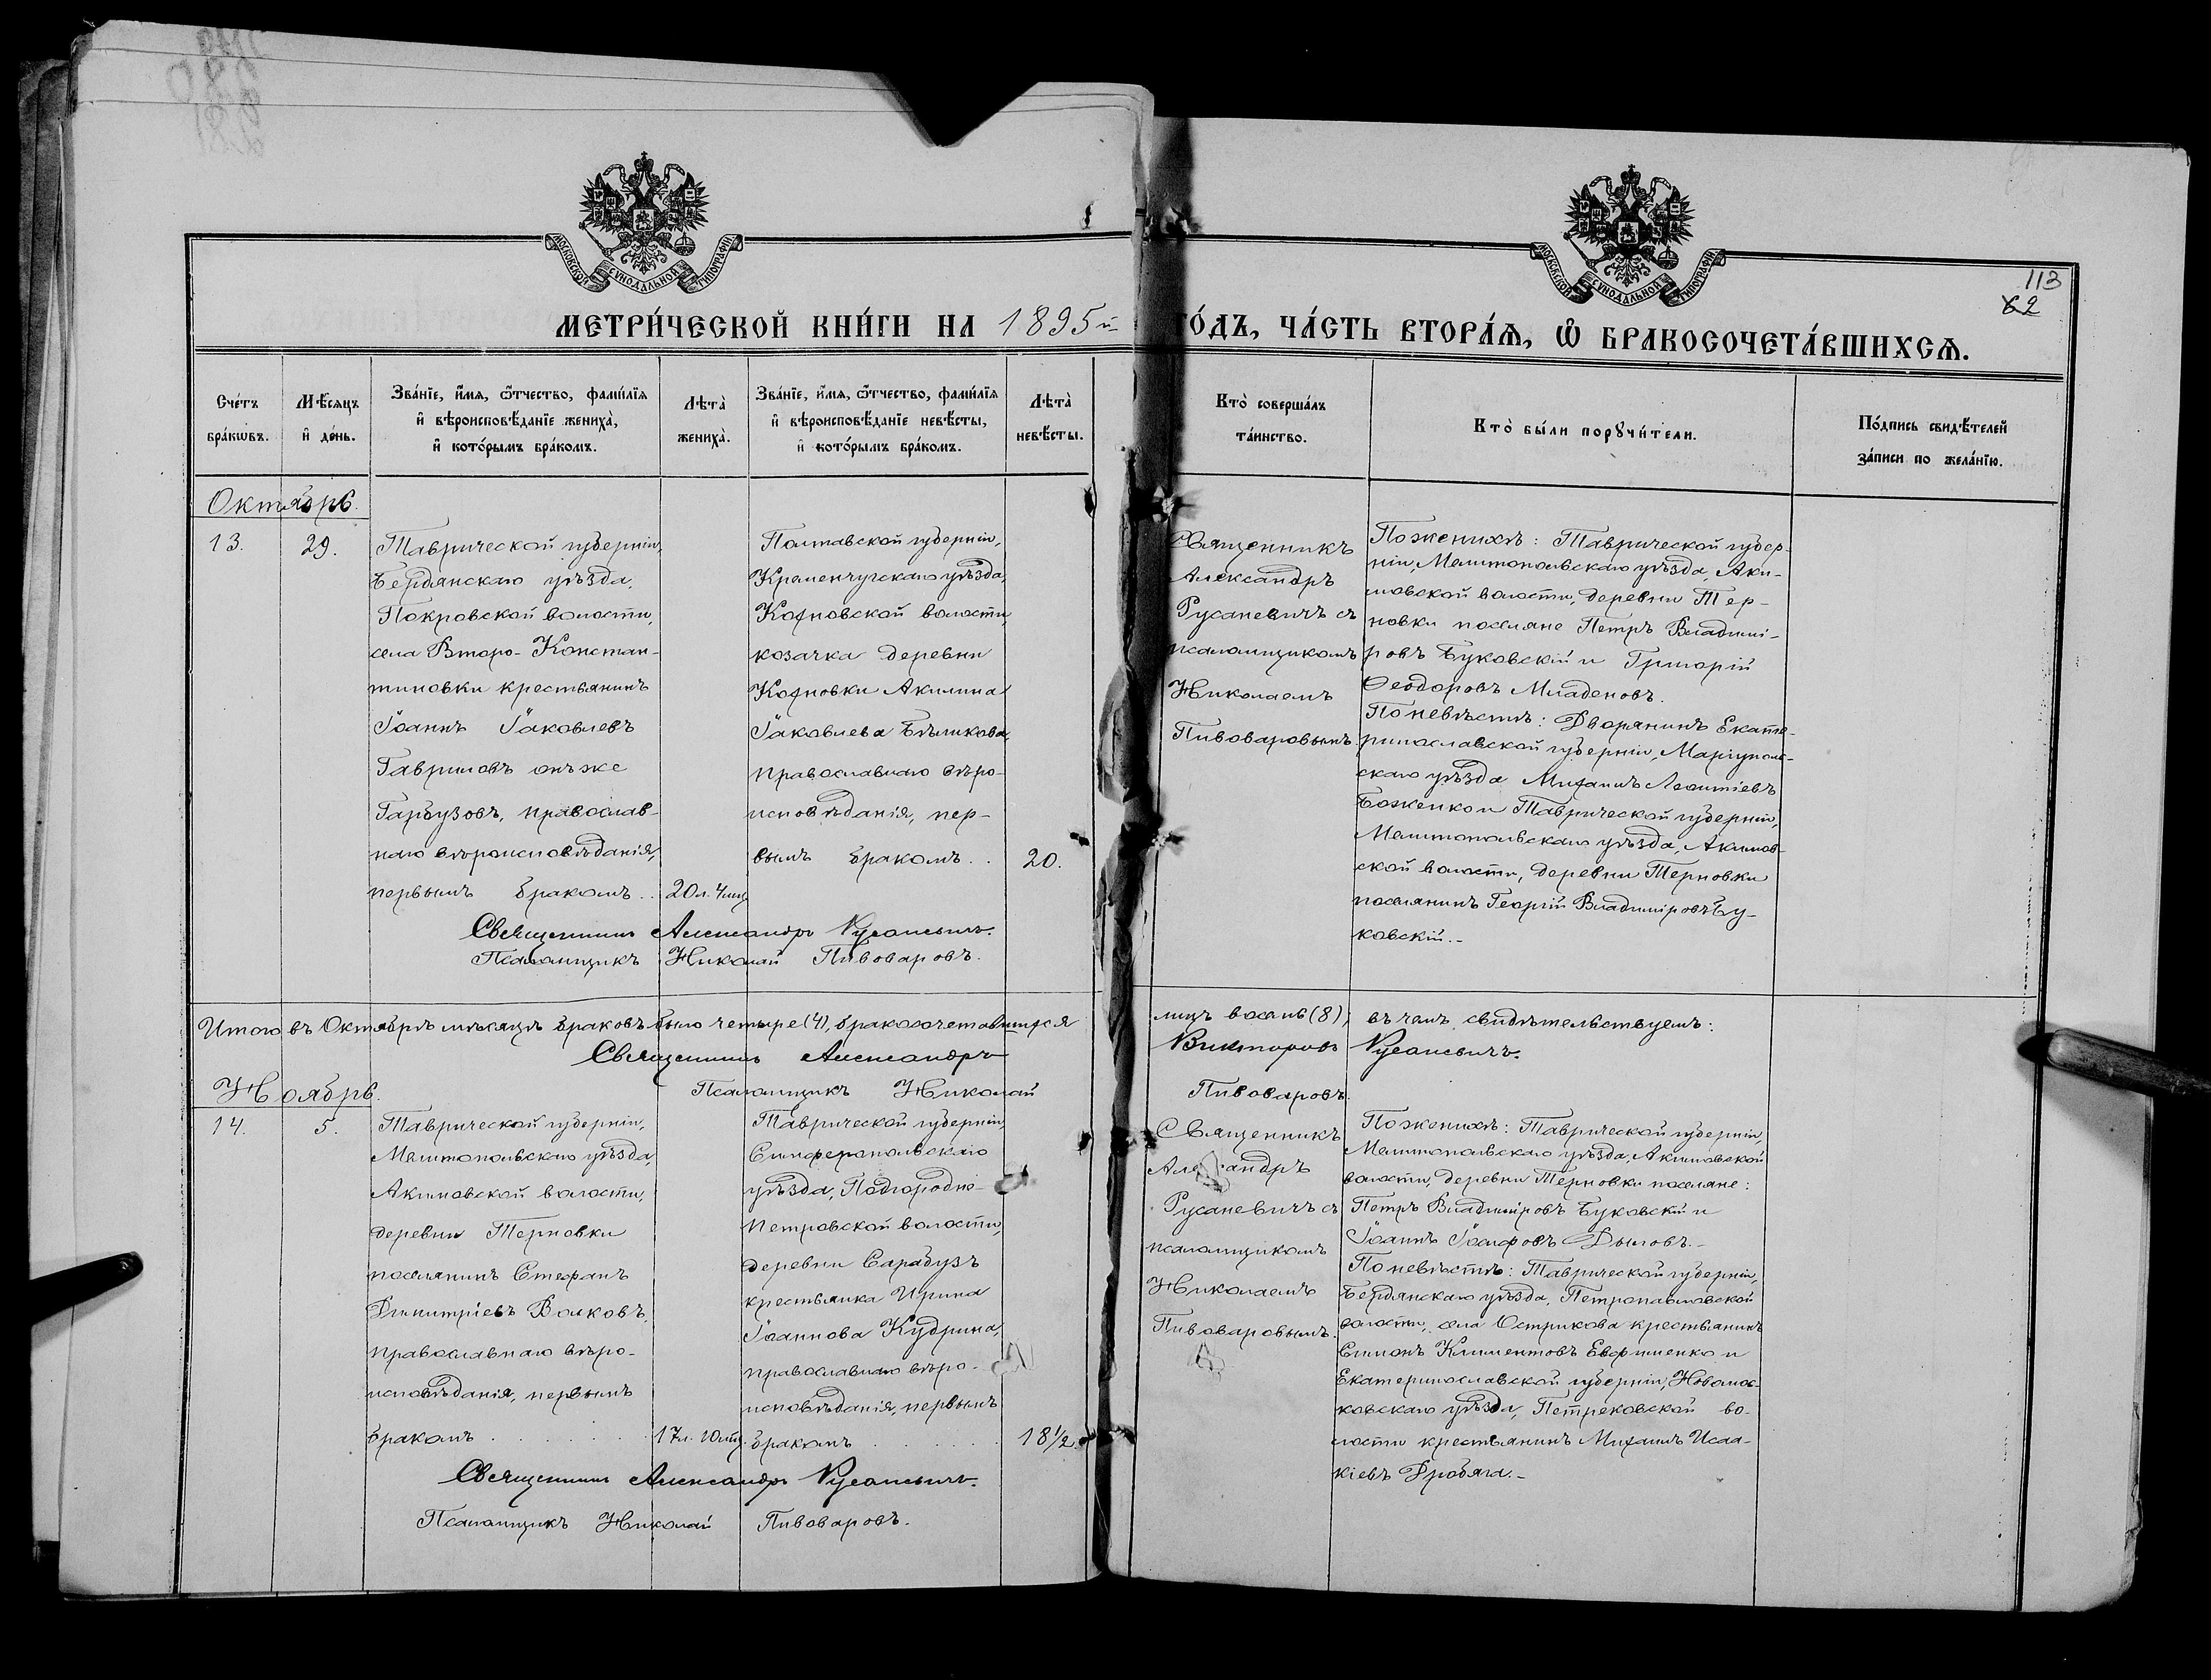 МОСКОВСКОЙ СУНОДАЛЬНОЙ ТИПОГРАФІИ
МОСКОВСКОЙ СУНОДАЛЬНОЙ ТИПОГРАФІИ
113
62
МЕТРИ́ЧЕСКОЙ КНИ́ГИ НА 1895й
ГО́ДЪ, ЧА́СТЬ ВТОРА́Ѧ, Ѽ БРАКОСОЧЕТА́ВШИХСѦ.
Сче́тъ
бра́кѡвъ.
Мѣ́сяцъ
и҆ де́нь.
Зва́нїе, и҆́мѧ, ѻ҆́тчество, фами́лїѧ
и҆ вѣроисповѣ́данїе жениха̀,
и҆ кото́рымъ бра́комъ.
Лѣта̀
жениха̀.
Зва́нїе, и҆́мѧ, ѻ҆́тчество, фами́лїѧ
и҆ вѣроисповѣ́данїе невѣ́сты,
и҆ кото́рымъ бра́комъ.
Лѣта̀
невѣ́сты.
Кто̀ соверша́лъ
та́инство.
Кто̀ бы́ли порꙋчи́тели.
По́дпись свидѣ́телей
за́писи по жела́нїю.
Октябрь.
13.
29.
Таврической губерніи,
Бердянскаго уѣзда,
Покровской волости,
села Второ-Констан-
тиновки крестьянинъ
Іоаннъ Іаковлевъ
Гавриловъ онъ же
Гарбузовъ, православ-
наго вѣроисповѣданія,
первымъ бракомъ..
20 л. 4 мц
Полтавской губерніи,
Кременчугскаго уѣзда,
Кохновской волости,
козачка деревни
Кохновки Акилина
Іаковлева Бѣликова,
православнаго вѣро-
исповѣданія, пер-
вымъ бракомъ..
20.
Священникъ
Александръ
Русаневичъ съ
псаломщикомъ
Николаемъ
Пивоваровымъ.
По женихѣ: Таврической губер-
ніи, Мелитопольскаго уѣзда, Аки-
мовской волости, деревни Тер-
новки поселяне Петръ Владимі-
ровъ Буковскій и Григорій
Ѳеодоровъ Младеновъ.
По невѣстѣ: Дворянинъ Екате-
ринославской губерніи, Маріуполь-
скаго уѣзда Михаилъ Леонтіевъ
Боженко и Таврической губерніи,
Мелитопольскаго уѣзда, Акимов-
ской волости, деревни Терновки
поселянинъ Георгій Владиміровъ Бу-
ковскій.-
Священникъ Александръ Русаневичъ.
Псаломщикъ Николай Пивоваровъ.
Итого въ Октябрѣ мѣсяцѣ браковъ было четыре (4), бракосочетавшихся лицъ восемь (8), въ чемъ свидѣтельствуемъ:
Священникъ Александръ Викторовъ Русаневичъ.
Псаломщикъ Николай Пивоваровъ.
Ноябрь.
14.
5.
Таврической губерніи,
Мелитопольскаго уѣзда,
Акимовской волости,
деревни Терновки
поселянинъ Стефанъ
Димитріевъ Волковъ,
православнаго вѣро-
исповѣданія, первымъ
бракомъ . . . . . .
17 л. 10 мц.
Таврической губерніи,
Симферопольскаго
уѣзда, Подгородне-
Петровской волости,
деревни Сарабузъ
крестьянка Ирина
Іоаннова Кудрина,
православнаго вѣро-
исповѣданія, первымъ
бракомъ . . . . .
18 1/2.
Священникъ
Александръ
Русаневичъ съ
псаломщикомъ
Николаемъ
Пивоваровымъ.
По женихѣ: Таврической губерніи,
Мелитопольскаго уѣзда, Акимовской
волости, деревни Терновки поселяне:
Петръ Владиміровъ Буковскій и
Іоаннъ Іосифовъ Дыловъ.-
По невѣстѣ: Таврической губерніи,
Бердянскаго уѣзда, Петропавловской
волости, села Острикова крестьянинъ
Симонъ Климентовъ Евфименко и
Екатеринославской губерніи, Новомос-
ковскаго уѣзда, Петрековской во-
лости крестьянинъ Михаилъ Исаа-
кіевъ Дробяга.-
Священникъ Александръ Русаневичъ.
Псаломщикъ Николай Пивоваровъ.